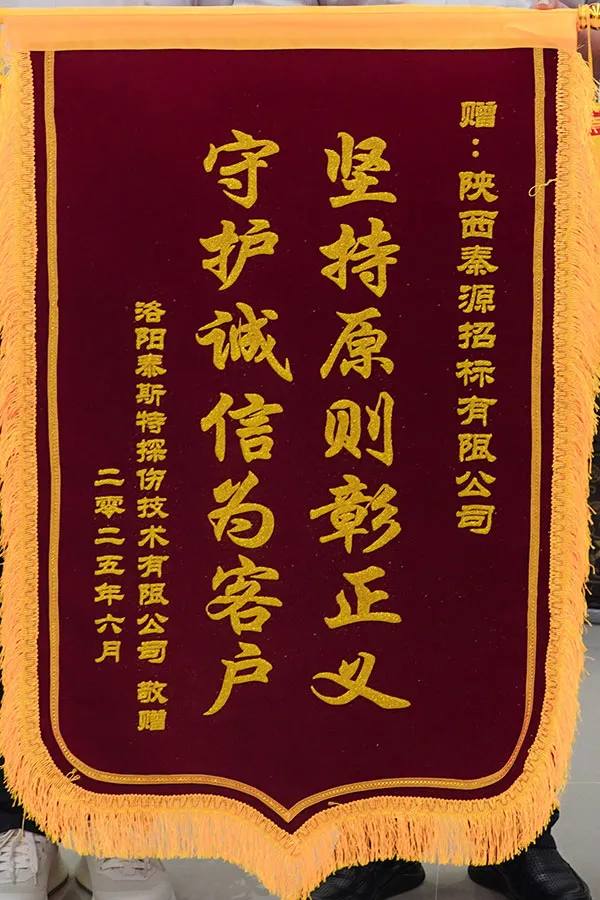 赠：陕西秦源招标有限公司
坚持原则彰正义
守护诚信为客户
洛阳泰斯特探伤技术有限公司 敬赠
二零二五年六月